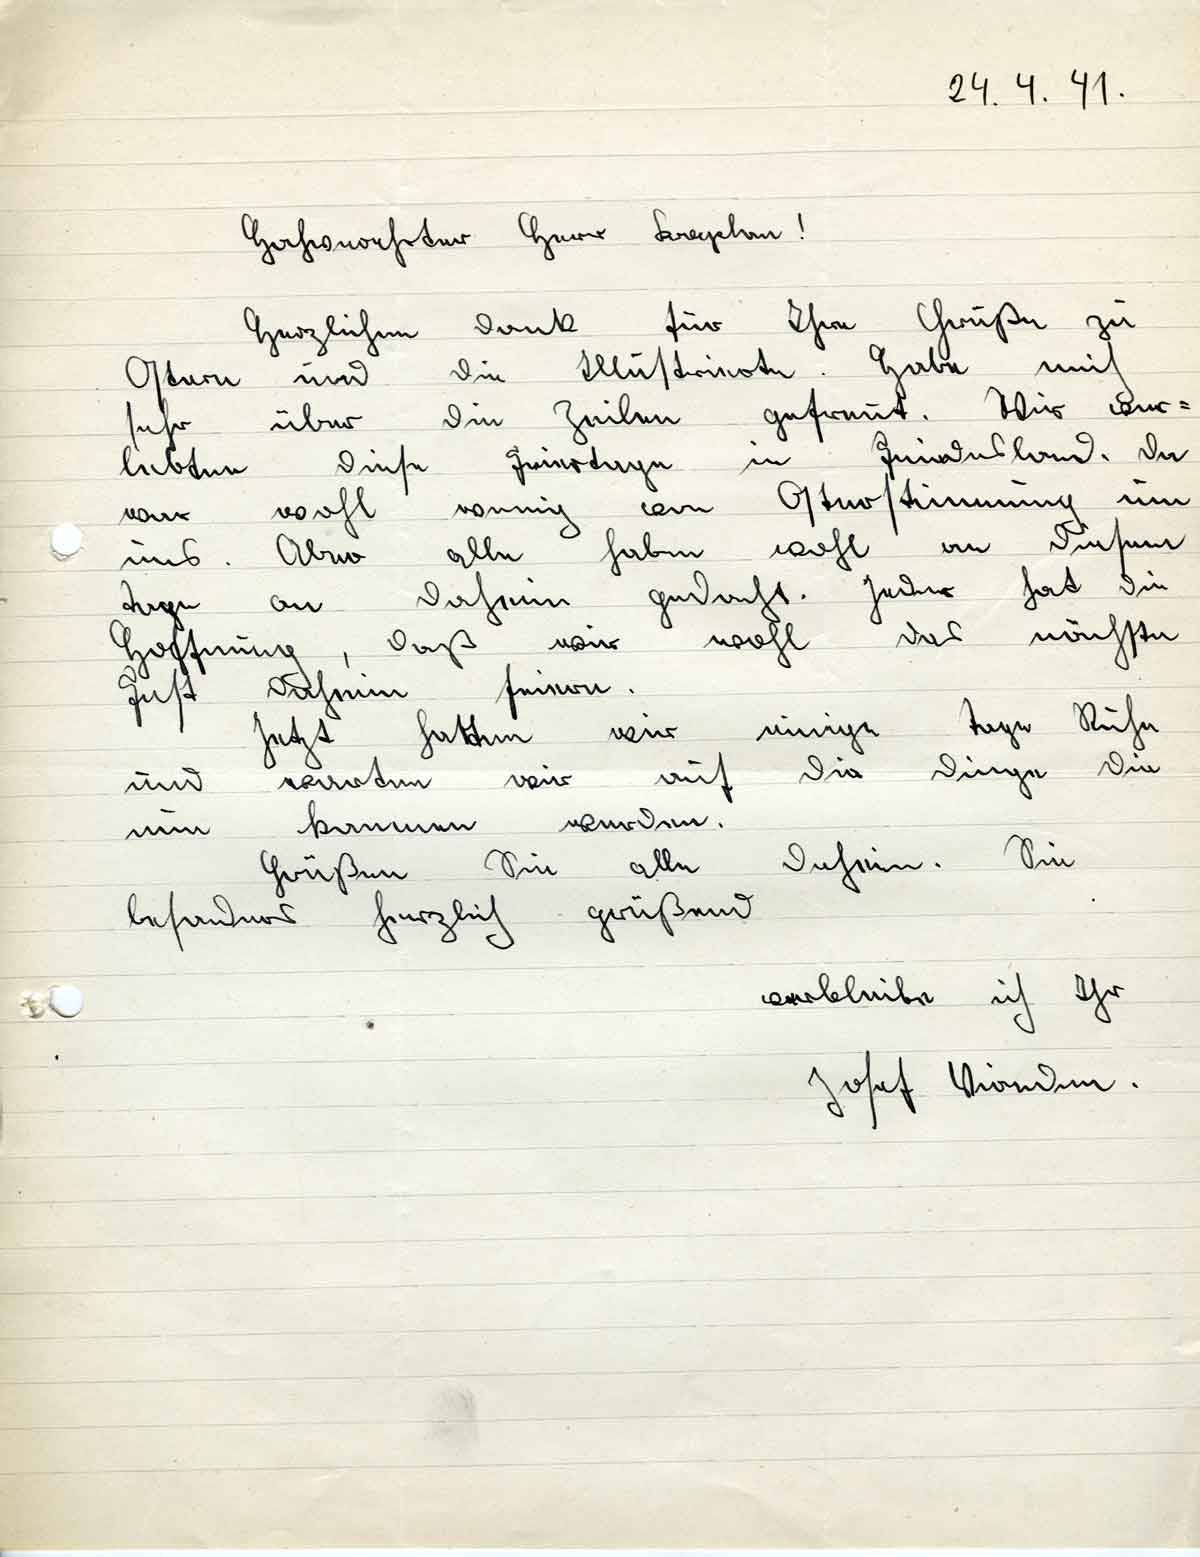 24. 4. 41.
Hochverehrter Herr Kaplan!
Herzlichen Dank für Ihre Grüße zu
Ostern und die Illustrierte. Habe mich
sehr über die Zeilen gefreut. Wir ver=
lebten diese Feiertage in Feindesland. Da
war wohl wenig von Osterstimmung um
uns. Aber alle haben wohl an diesem
Tage an daheim gedacht. Jeder hat die
Hoffnung, daß wir wohl das nächste
Fest daheim feiern.
Jetzt hatten wir einige Tage Ruhe
und warten wir auf die Dinge die
nun kommen werden.
Grüßen Sie alle daheim. Sie
besonders herzlich grüßend
verbleibe ich Ihr
Josef Vianden.